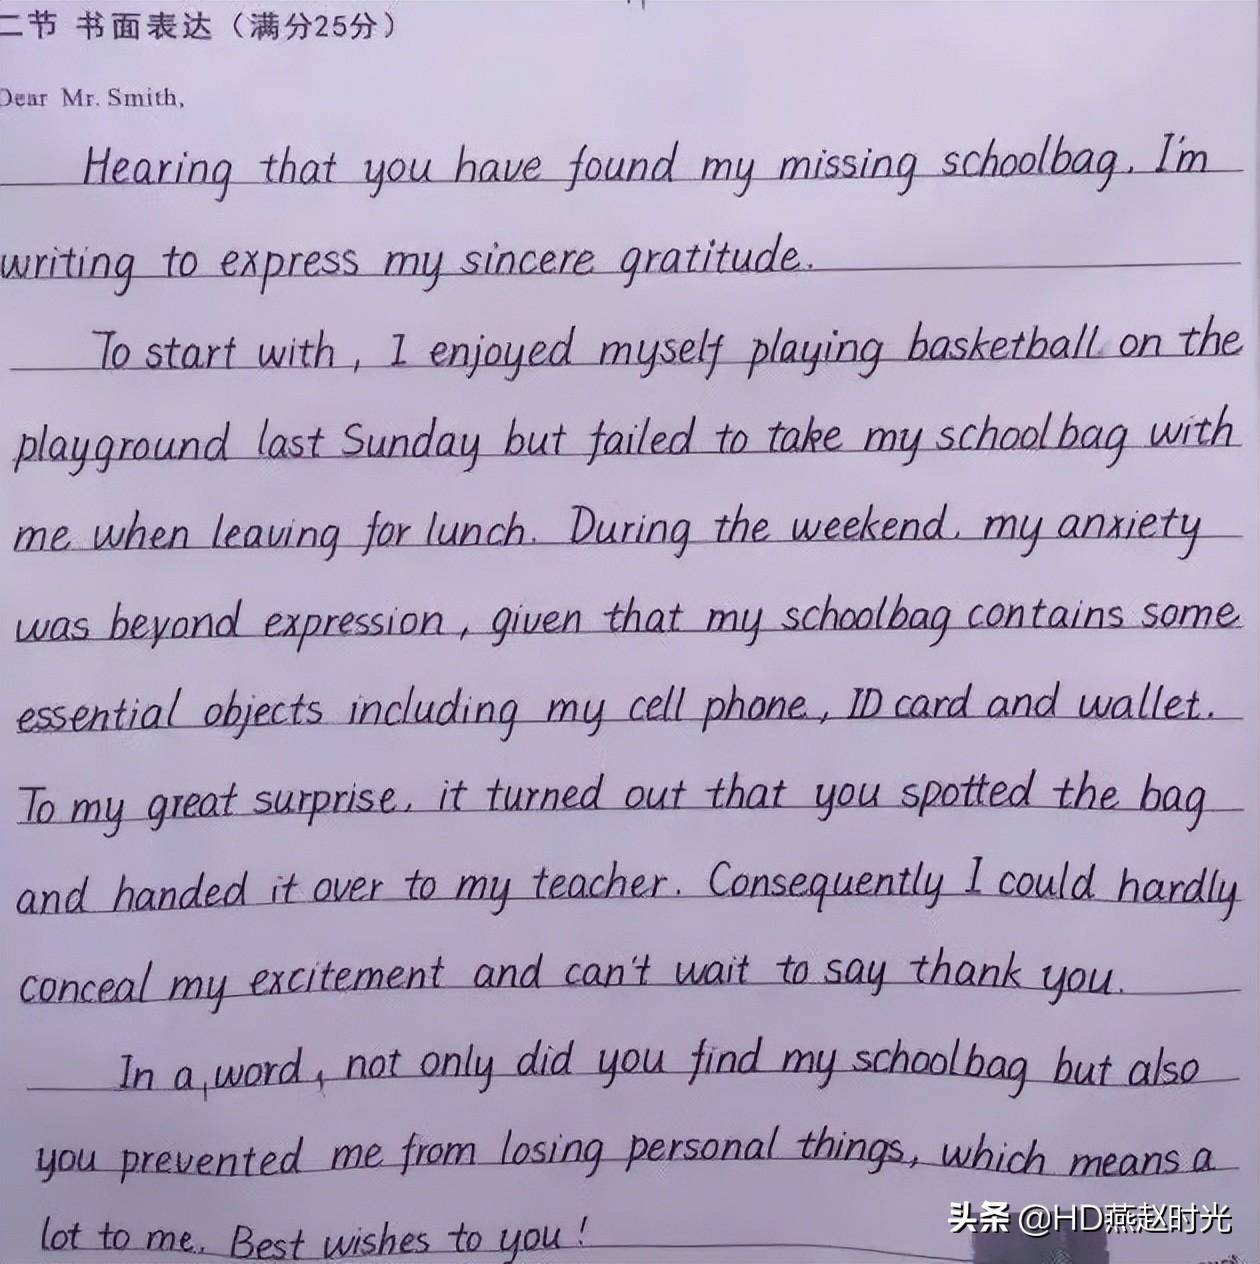 二节 书面表达（满分25分）
Dear Mr. Smith,
Hearing that you have found my missing schoolbag, I'm
writing to express my sincere gratitude.
To start with, I enjoyed myself playing basketball on the
playground last Sunday but failed to take my schoolbag with
me when leaving for lunch. During the weekend, my anxiety
was beyond expression, given that my schoolbag contains some
essential objects including my cell phone, ID card and wallet.
To my great surprise, it turned out that you spotted the bag
and handed it over to my teacher. Consequently I could hardly
conceal my excitement and can't wait to say thank you.
In a word, not only did you find my schoolbag but also
you prevented me from losing personal things, which means a
lot to me. Best wishes to you!
头条 @HD燕赵时光